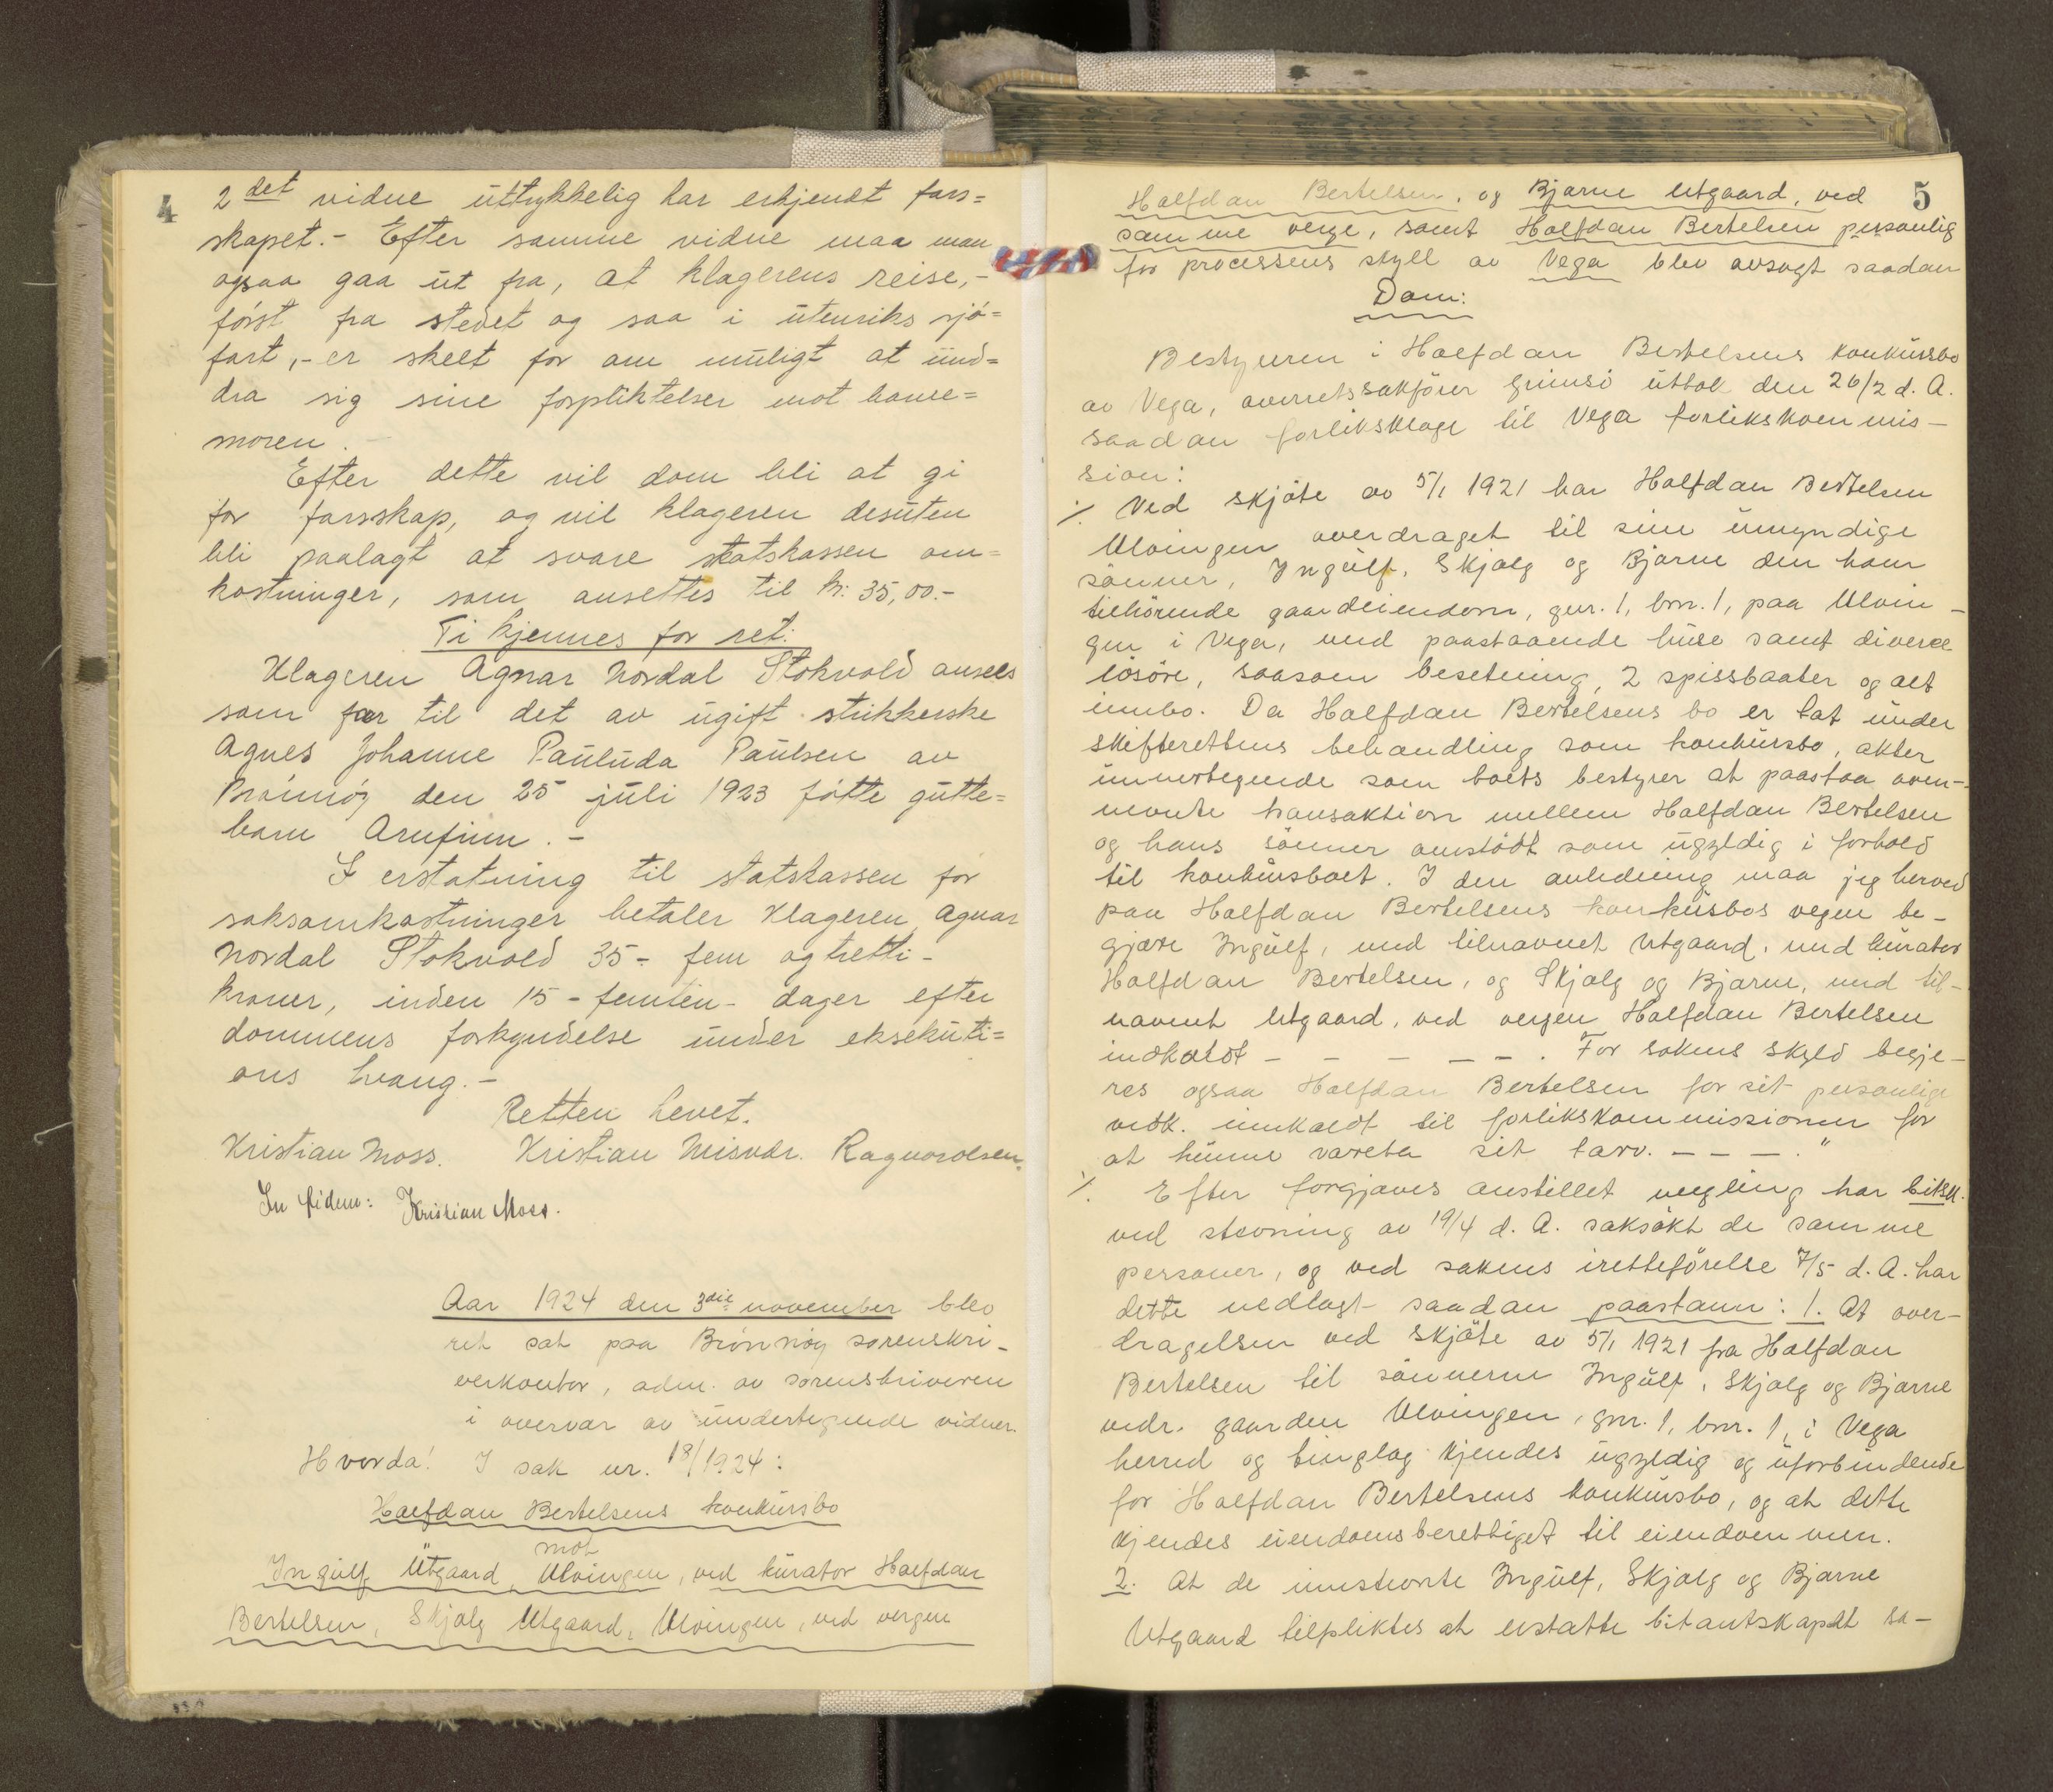 4
2det vidne uttrykkelig har erkjendt fars=
skapet.- Efter samme vidne maa man
ogsaa gaa ut fra, at klagerens reise,-
först fra stedet og saa i utenriks sjö=
fart,- er skeet for om muligt at und=
dra sig sine forpliktelser mot barne=
moren.
Efter dette vil dom bli at gi
for farsskap, og vil klageren desuten
bli paalagt at svare statskassen om=
kostninger, som ansettes til kr. 35,00.-
Ti kjennes for ret:
Klageren Agnar Nordal Stokvold ansees
som far til det av ugift strikkerske
Agnes Johanne Pauluda Paulsen av
Brönnöy den 25 juli 1923 fötte gutte=
barn Arnfinn.-
I erstatning til statskassen for
saksomkostninger betaler klageren Agnar
Nordal Stokvold 35- fem og tretti-
kroner, inden 15 - femten - dager efter
dommens forkyndelse under eksekuti=
ons tvang.-
Retten hevet.
Kristian Moss. Kristian Misvær. Ragnv. Olsen.
In fidem: Kristian Moss.
Aar 1924 den 3die november blev
ret sat paa Brönnöy sorenskri-
verkontor, adm. av sorenskriveren
i overvær av undertegnede vidner.
Hvorda! I sak nr. 18/1924:
Halfdan Bertelsens konkursbo
mot
Ingulf Utgaard, Ulvingen, ved kurator Halfdan
Bertelsen, Skjalg Utgaard, Ulvingen, ved vergen
5
Halfdan Bertelsen, og Bjarne Utgaard, ved
samme verge, samt Halfdan Bertelsen personlig
for processens skyll av Vega blev avsagt saadan
Dom:
Bestyreren i Halfdan Bertelsens konkursbo
av Vega, overretssakförer Grimsö uttok den 26/2 d. A.
saadan forliksklage til Vega forlikskommis-
sion:
./. Ved skjöte av 5/1 1921 har Halfdan Bertelsen
Ulvingen overdraget til sine umyndige
sönner, Ingulf, Skjalg og Bjarne den ham
tilhörende gaardeiendom, gnr. 1, bnr. 1, paa Ulvin-
gen i Vega, med paastaaende huse samt diverse
lösöre, saasom besetning, 2 spissbaater og alt
innbo. Da Halfdan Bertelsens bo er tat under
skifterettens behandling som konkursbo, akter
undertegnede som boets bestyrer at paastaa oven-
nevnte transaktion mellem Halfdan Bertelsen
og hans sönner omstödt som ugyldig i forhold
til konkursboet. I den anledning maa jeg herved
paa Halfdan Bertelsens konkursbos vegne be-
gjære Ingulf, med tilnavnet Utgaard, med kurator
Halfdan Bertelsen, og Skjalg og Bjarne, med til-
navnet Utgaard, ved vergen Halfdan Bertelsen
indkaldt - - - - - . For sakens skyld begjæ-
res ogsaa Halfdan Bertelsen for sit personlige
vedk. innkaldt til forlikskommissionen for
at kunne vareta sit tarv. - - - ."
./. Efter forgjæves anstillet megling har citsk.
ved stevning av 19/4 d. A. saksökt de samme
personer, og ved sakens iretteförelse 7/5 d. A. har
dette nedlagt saadan paastann: 1. At over-
dragelsen ved skjöte av 5/1 1921 fra Halfdan
Bertelsen til sönnerne Ingulf, Skjalg og Bjarne
vedr. gaarden Ulvingen, gnr. 1, bnr. 1, i Vega
herred og tinglag kjendes ugyldig og uforbindende
for Halfdan Bertelsens konkursbo, og at dette
kjendes eiendomsberettiget til eiendommen.
2. At de innstevnte Ingulf, Skjalg og Bjarne
Utgaard tilpliktes at erstatte citantskapet sa-